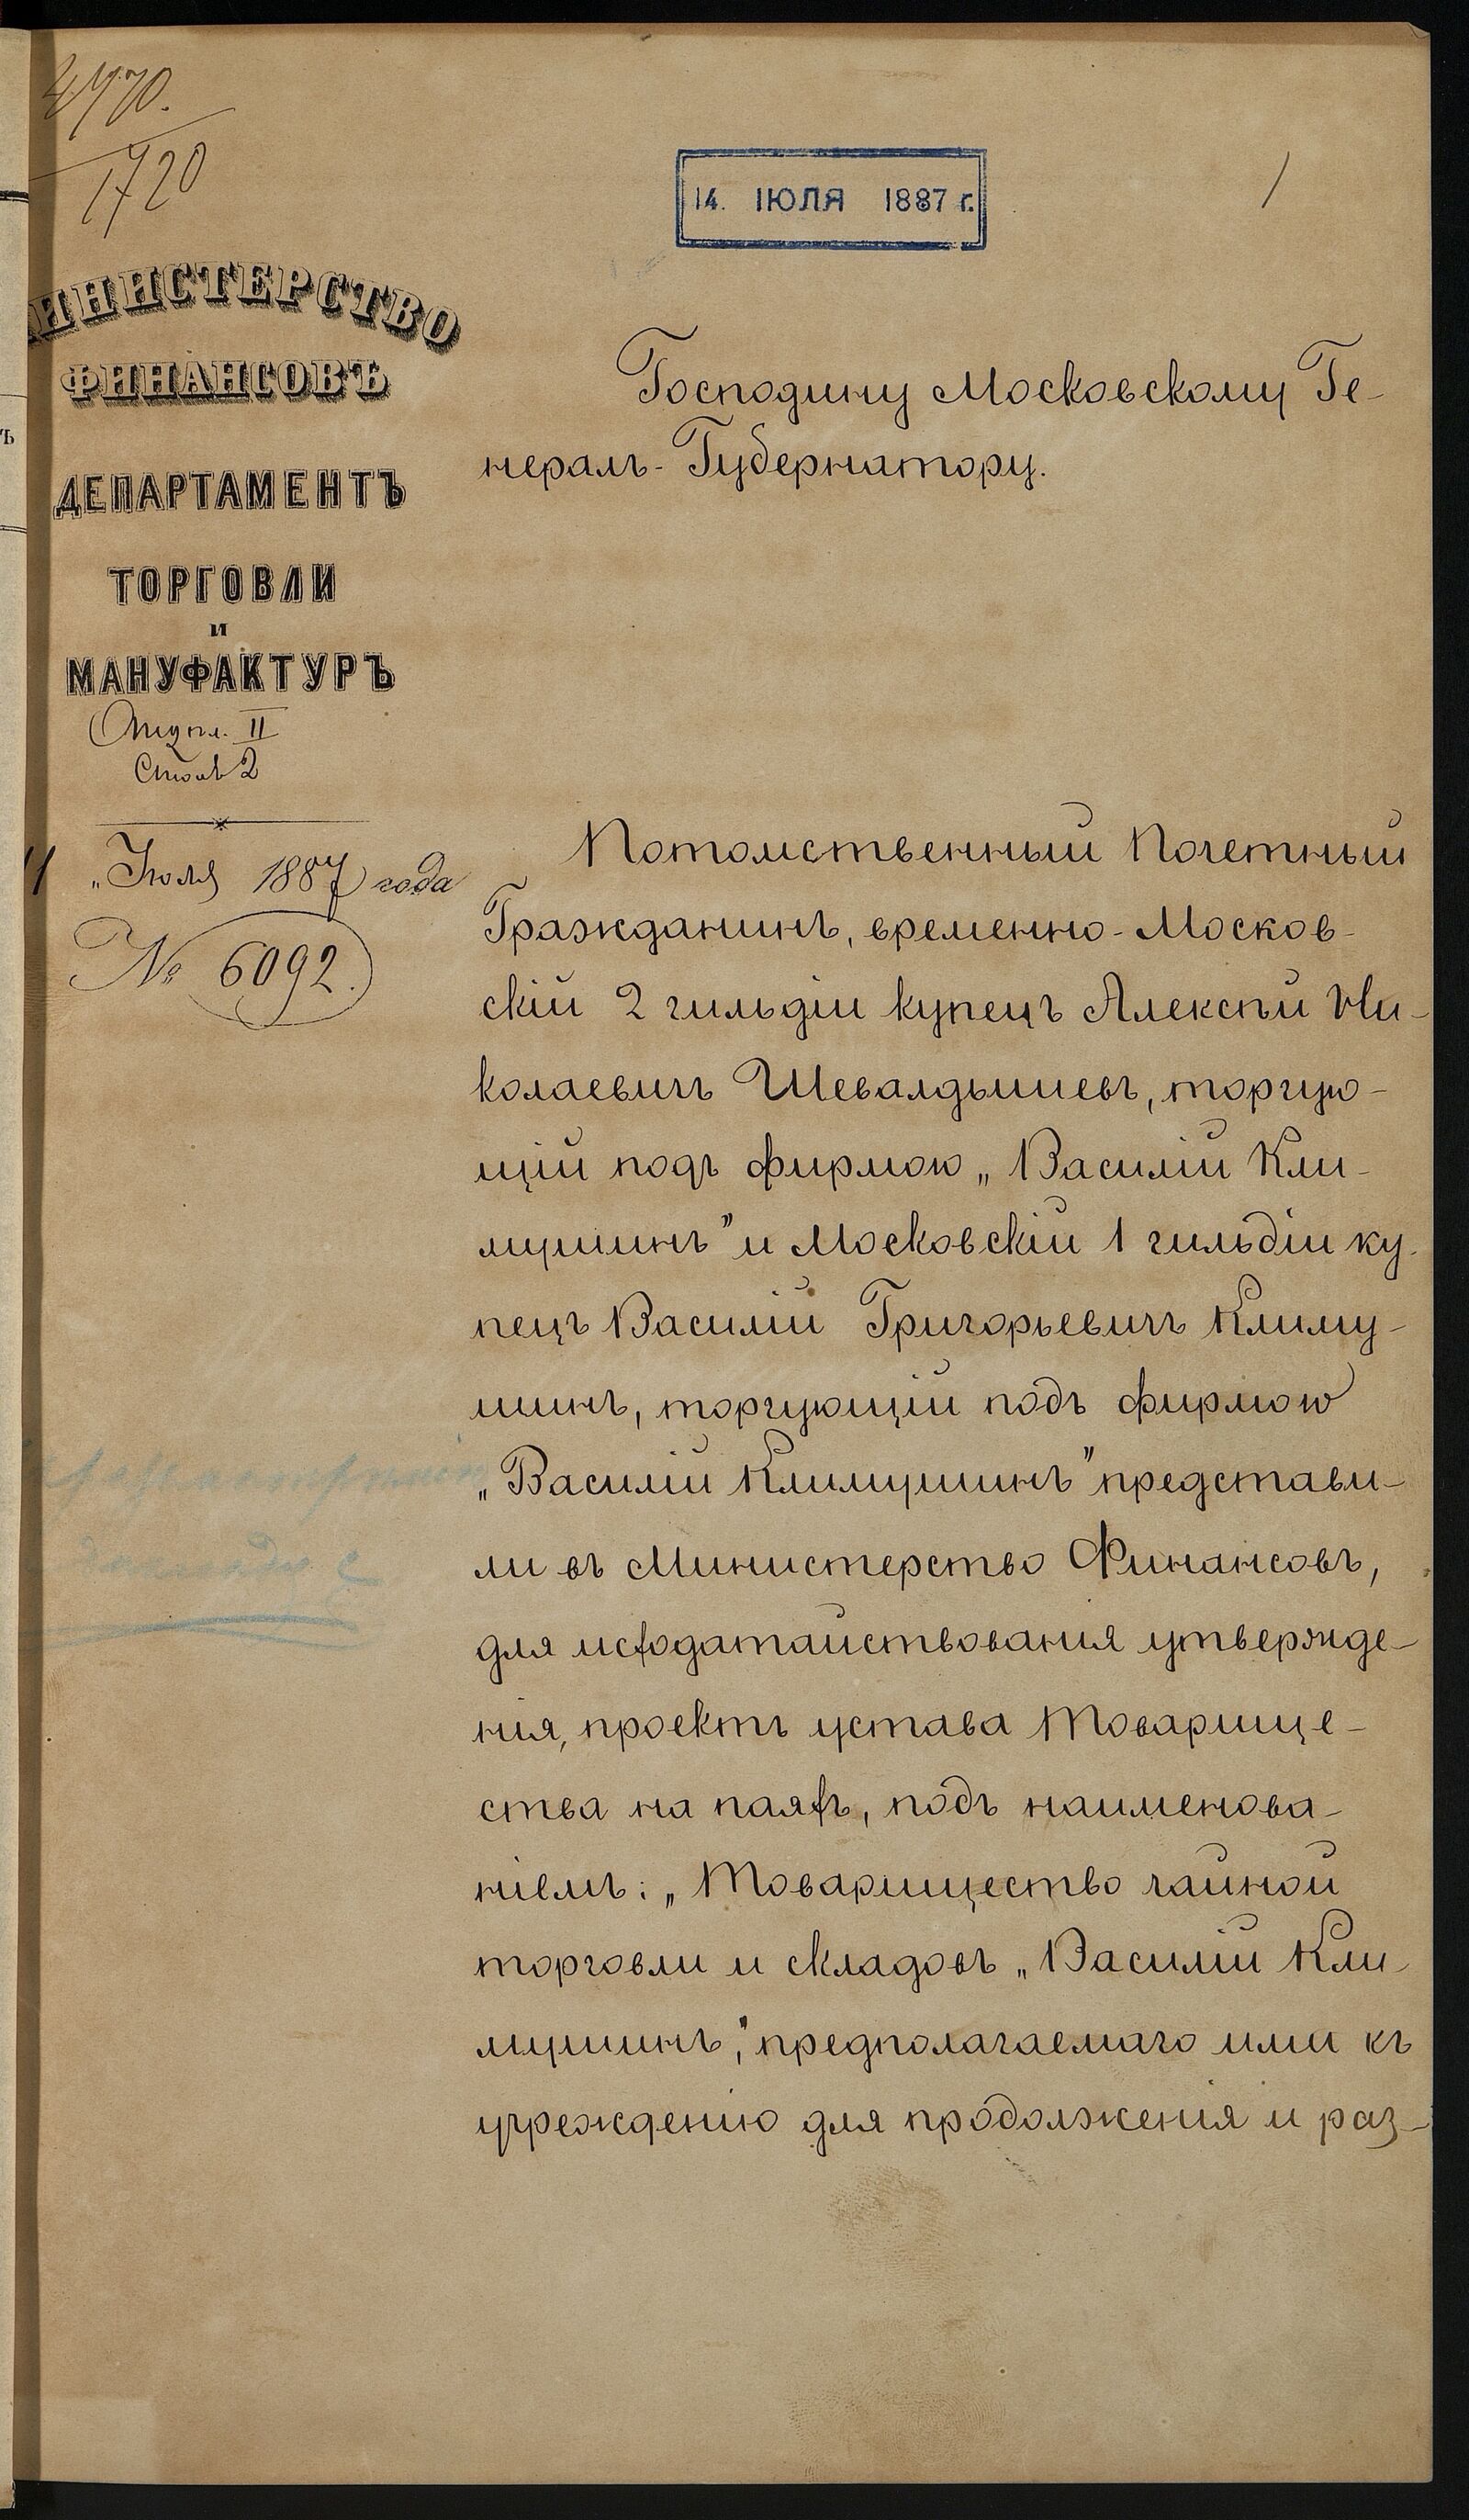 4970.
1720
14. ІЮЛЯ 1887 г.
1
МИНИСТЕРСТВО
ФИНАНСОВЪ
ДЕПАРТАМЕНТЪ
ТОРГОВЛИ
И
МАНУФАКТУРЪ
Отдѣл. II
Столъ 2
11 „Іюля 1887 года
№ 6092.
Господину Московскому Ге-
нералъ-Губернатору.
Потомственный Почетный
Гражданинъ, временно-Москов-
скій 2 гильдіи купецъ Алексѣй Ни-
колаевичъ Шевалдышевъ, торгую-
щій подъ фирмою „Василій Кли-
мушинъ" и Московскій 1 гильдіи ку-
пецъ Василій Григорьевичъ Климу-
шинъ, торгующій подъ фирмою
„Василій Климушинъ" представи-
ли въ Министерство Финансовъ,
для исходатайствованія утвержде-
нія, проектъ устава Товарище-
ства на паяхъ, подъ наименова-
ніемъ: „Товарищество чайной
торговли и складовъ „Василій Кли-
мушинъ", предполагаемаго ими къ
учрежденію для продолженія и раз-